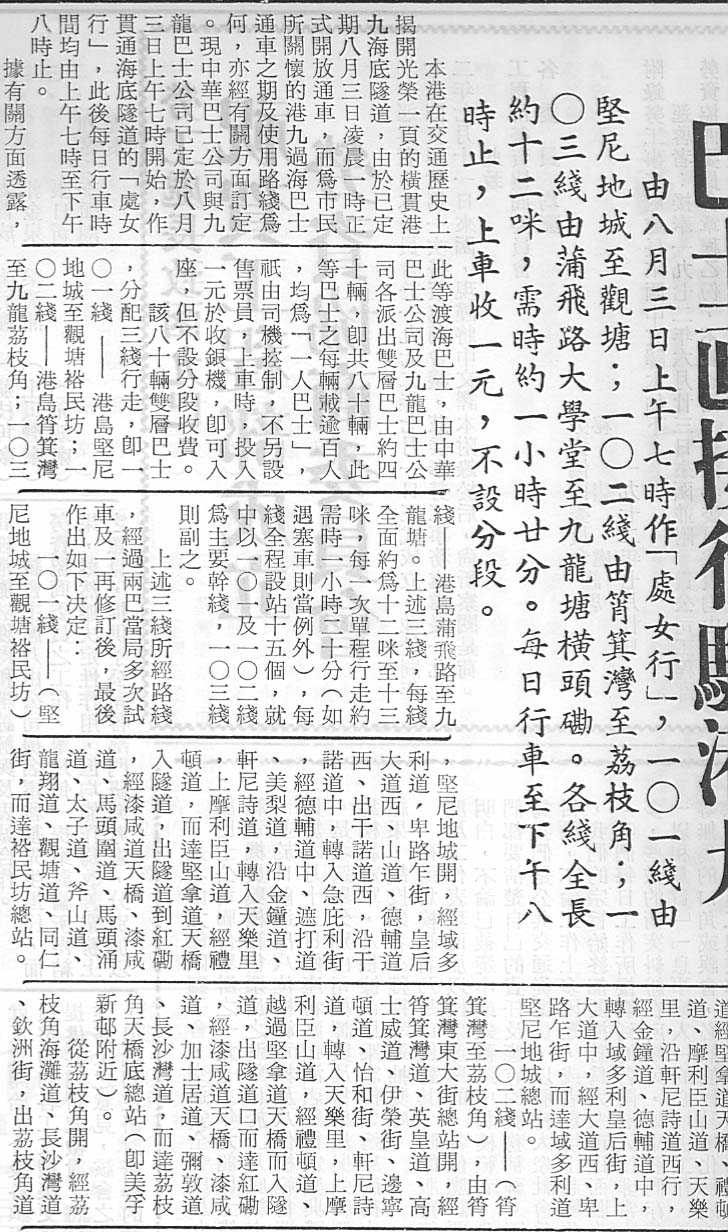 由八月三日上午七時作「處女行」，一〇一綫由
堅尼地城至觀塘；一〇二綫由筲箕灣至荔枝角；一
〇三綫由蒲飛路大學堂至九龍塘橫頭磡。各綫全長
約十二咪，需時約一小時廿分。每日行車至下午八
時止，上車收一元，不設分段。
本港在交通歷史上
揭開光榮一頁的橫貫港
九海底隧道，由於已定
期八月三日凌晨一時正
式開放通車，而爲市民
所關懷的港九過海巴士
通車之期及使用路綫爲
何，亦經有關方面訂定
。現中華巴士公司與九
龍巴士公司已定於八月
三日上午七時開始，作
貫通海底隧道的「處女
行」，此後每日行車時
間均由上午七時至下午
八時止。
據有關方面透露，
此等渡海巴士，由中華
巴士公司及九龍巴士公
司各派出雙層巴士約四
十輛，卽共八十輛，此
等巴士之每輛載逾百人
，均爲「一人巴士」，
祇由司機控制，不另設
售票員，上車時，投入
一元於收銀機，卽可入
座，但不設分段收費。
該八十輛雙層巴士
，分配三綫行走，卽一
〇一綫——港島堅尼
地城至觀塘裕民坊；一
〇二綫——港島筲箕灣
至九龍荔枝角；一〇三
綫——港島蒲飛路至九
龍塘。上述三綫，每綫
全面約爲十二咪至十三
咪，每一次單程行走約
需時一小時二十分（如
遇塞車則當例外），每
綫全程設站十五個，就
中以一〇一及一〇二綫
爲主要幹綫，一〇三綫
則副之。
上述三綫所經路綫
，經過兩巴當局多次試
車及一再修訂後，最後
作出如下決定：
一〇一綫——（堅
尼地城至觀塘裕民坊）
，堅尼地城開，經域多
利道，卑路乍街，皇后
大道西、山道、德輔道
西、出干諾道西，沿干
諾道中，轉入急庇利街
，經德輔道中、遮打道
、美梨道，沿金鐘道、
軒尼詩道，轉入天樂里
，上摩利臣山道，經禮
頓道，而達堅拿道天橋
入隧道，出隧道到紅磡
，經漆咸道天橋、漆咸
道、馬頭圍道、馬頭涌
道、太子道、斧山道、
龍翔道、觀塘道、同仁
街，而達裕民坊總站。
道經堅拿道天橋、禮頓
道、摩利臣山道、天樂
里、沿軒尼詩道西行，
經金鐘道、德輔道中，
轉入域多利皇后街，上
大道中，經大道西、卑
路乍街，而達域多利道
堅尼地城總站。
一〇二綫——（筲
箕灣至荔枝角），由筲
箕灣東大街總站開，經
筲箕灣道、英皇道、高
士威道、伊榮街、邊寧
頓道、怡和街、軒尼詩
道，轉入天樂里，上摩
利臣山道，經禮頓道，
越過堅拿道天橋而入隧
道，出隧道口而達紅磡
，經漆咸道天橋、漆咸
道、加士居道、彌敦道
、長沙灣道，而達荔枝
角天橋底總站（卽美孚
新邨附近）。
從荔枝角開，經荔
枝角海灘道、長沙灣道
、欽洲街，出荔枝角道